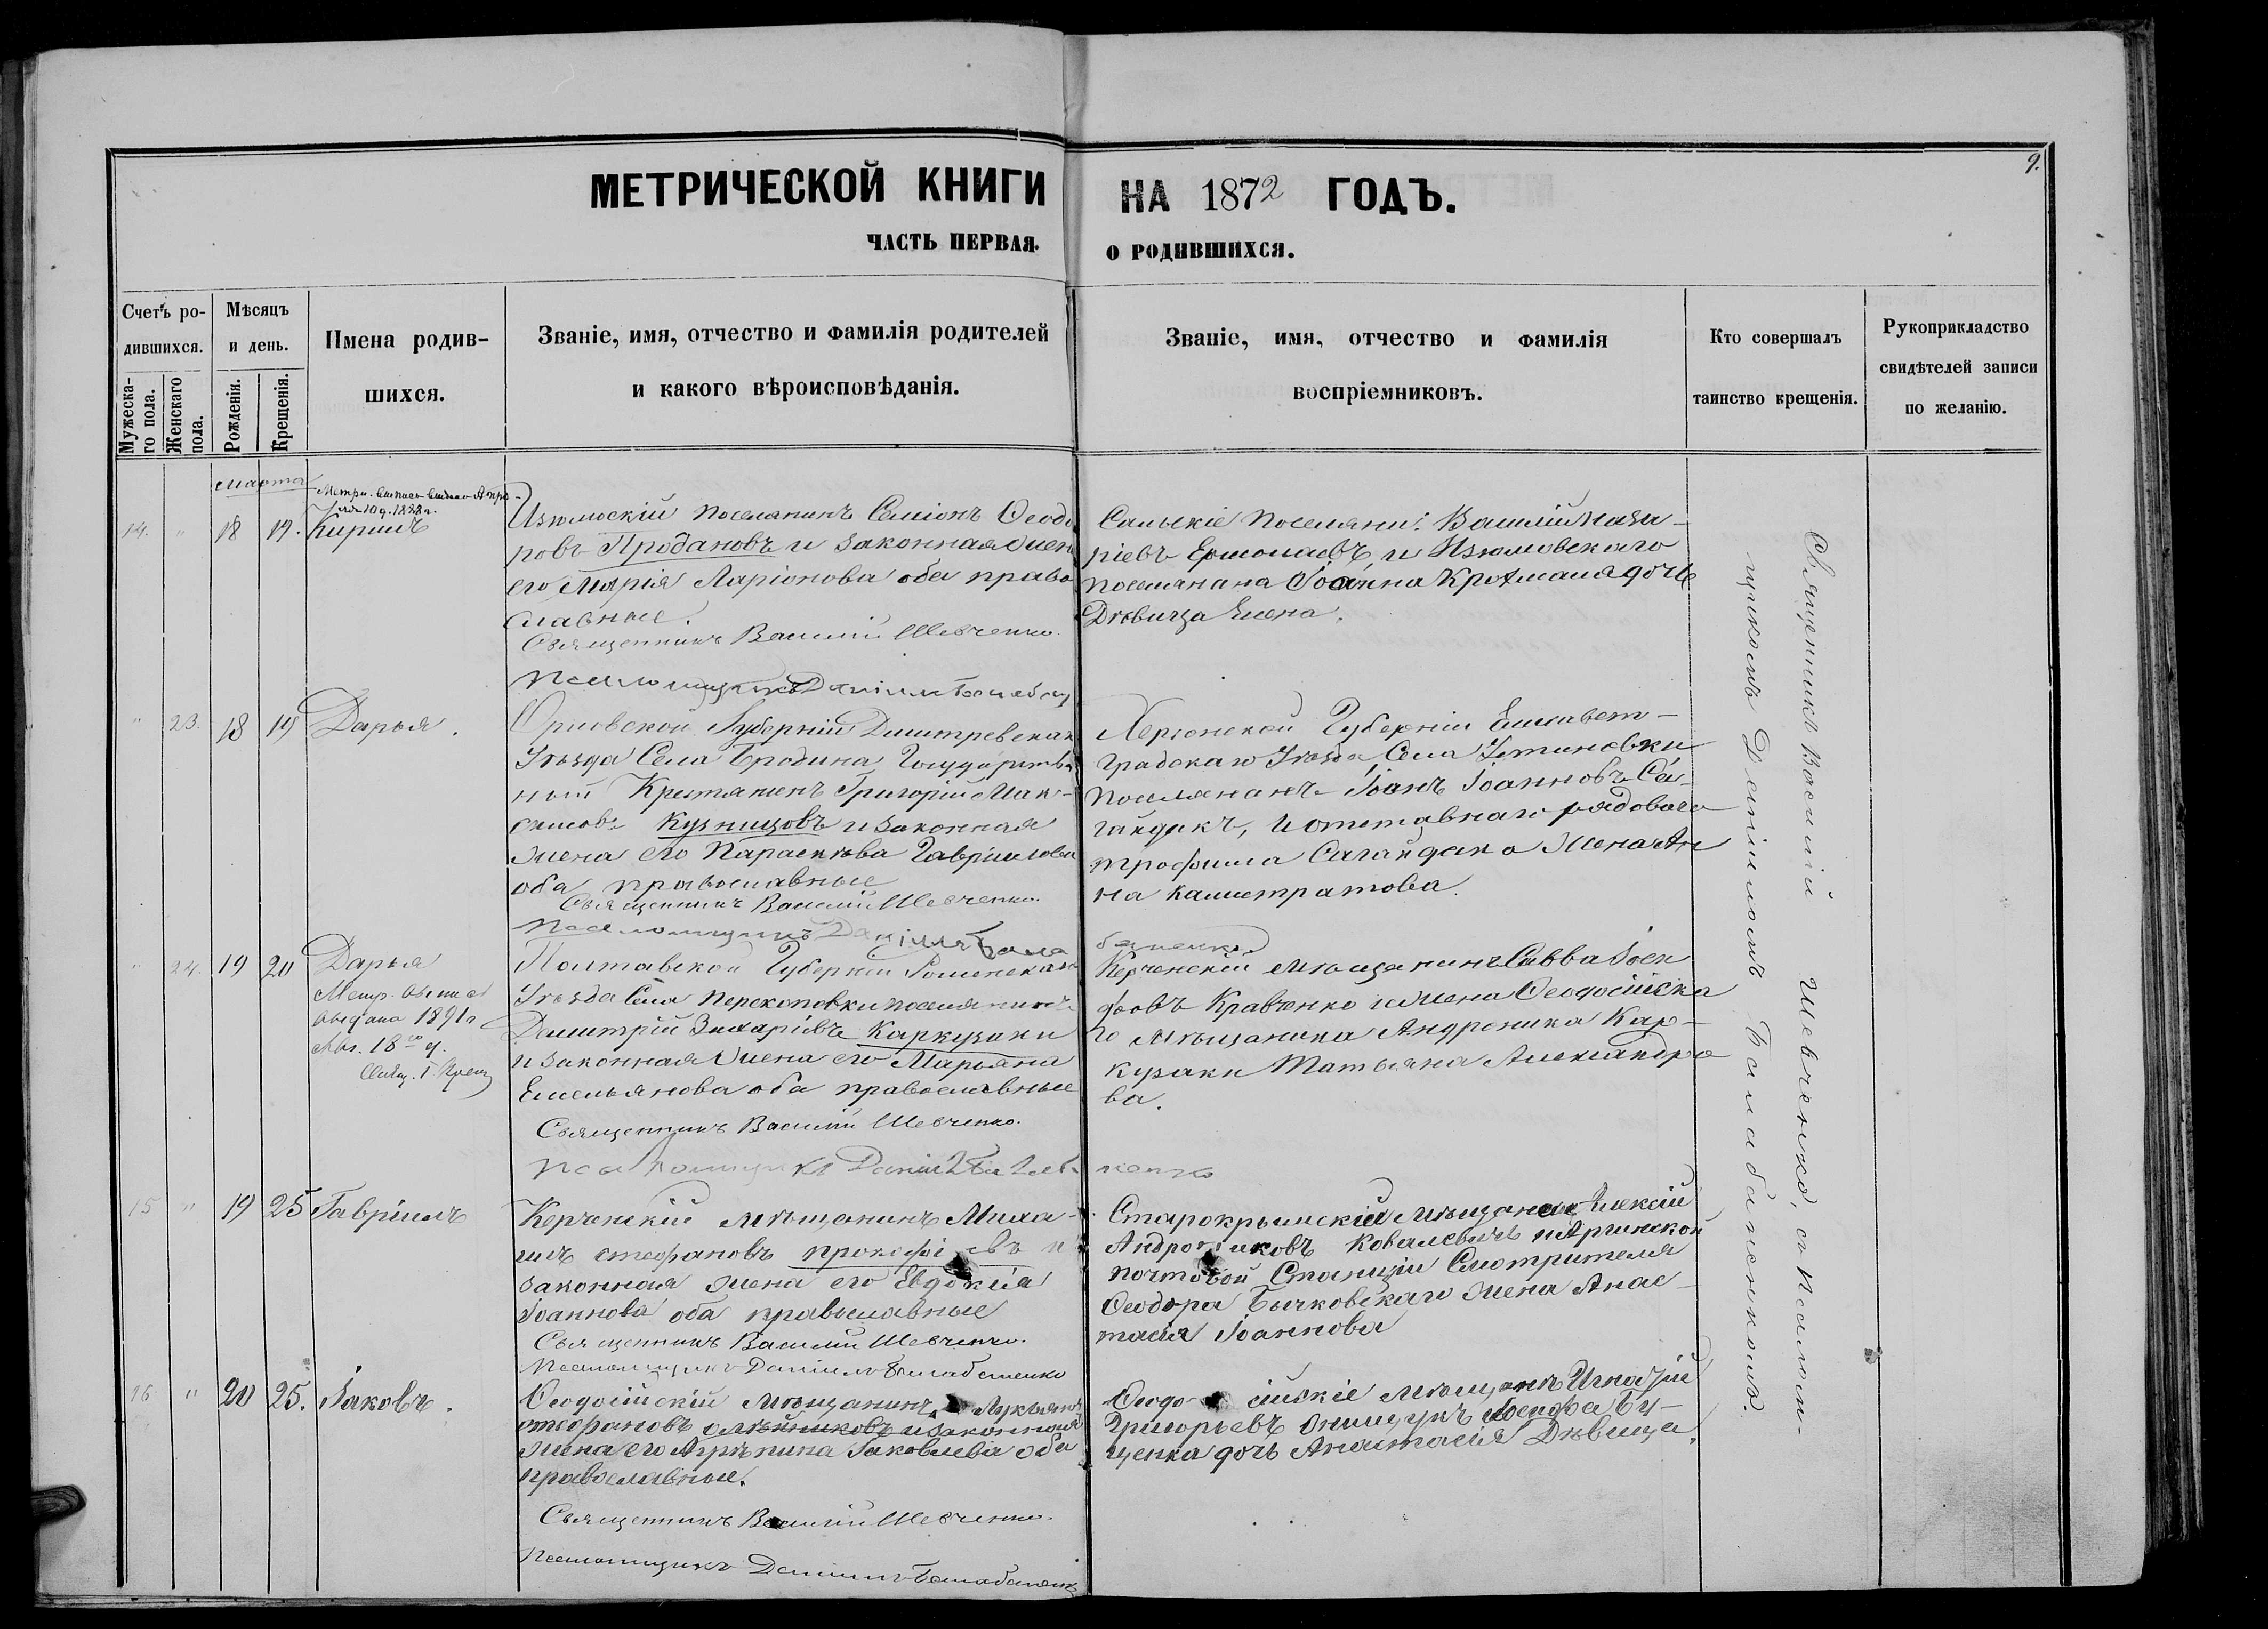 9.
МЕТРИЧЕСКОЙ КНИГИ НА 1872 ГОДЪ.
ЧАСТЬ ПЕРВАЯ. О РОДИВШИХСЯ.
Счетъ ро-
дившихся.
Мужеска-
го пола.
Женскаго
пола.
Мѣсяцъ
и день.
Рожденія.
Крещенія.
Имена родив-
шихся.
Званіе, имя, отчество и фамилія родителей
и какого вѣроисповѣданія.
Званіе, имя, отчество и фамилія
воспріемниковъ.
Кто совершалъ
таинство крещенія.
Рукоприкладство
свидѣтелей записи
по желанію.
Марта
14. " 18 19. Кирилъ
Изюмоскій поселянинъ Симіонъ Ѳеодо
ровъ Продановъ и законная жен
его Марія Ларіонова оба право
славные.
Священникъ Василій Шевченко.
Псаломщикъ Даніилъ
Сальскіе поселяни: Василій Наза-
ріевъ Ермолаевъ, и Изюмовскаго
поселянина Іоанна дочь
Дѣвица Елена.
" 23. 18 19 Дарья.
Орловской Губерніи Дмитревскаг
Уѣзда Села Бродина Государств
ный Крестянинъ Григорій Мак-
симовъ Кузнецовъ и законная
жена его Параскѣва Гавріилова
оба православные
Священникъ Василій Шевченко.
Псаломщикъ Даніилъ Бала
баненко
Херсонской Губерніи Елисавет-
градскаго Уѣзда Села Устиновки
поселянинъ Іоанъ Іоанновъ Са-
гайдакъ, и отставнаго рядоваго
трофима Сагайдака жена Ан
на Калистратова.
" 24. 19 20 Дарья
Метр. выпись
выдана 1891 г
Авг. 18го д.
Полтавской Губерніи Роменскаго
Уѣзда Села Перекоповки поселянинъ
Димитрій Захаріевъ Каркузаки
и законная жена его Марьяна
Емельянова оба православные
Священникъ Василій Шевченко.
Псаломщикъ Даніилъ Балабаненко
Керченскій мѣщанинъ Савва Іоси
фовъ Кравченко и жена Ѳеодосійска
го мѣщанина Андроника Кар-
кузаки Татьяна Александро
ва.
15 " 19 25 Гавріилъ
Керченскій мѣщанинъ Миха-
илъ стефановъ прокофіевъ и
законная жена его Евдокія
Іоаннова оба православные
Священникъ Василій Шевченко.
Псаломщикъ Даніилъ Балабаненко
Старокрымскій мѣщанинъ Алексій
Андрониковъ Ковалевичъ и Аргинской
почтовой Станціи Смотрителя
Ѳеодора Бычковскаго жена Анас-
тасія Іоаннова
16 " 20 25. Іаковъ.
Ѳеодосійскій мѣщанинъ Лукьянъ
стефановъ олѣйниковъ и законная
жена его Агрипина Іаковлева оба
православные.
Священникъ Василій Шевченко.
Псаломщикъ Даніилъ Балабаненк
Ѳеодосійскіе мѣщанъ Игнатій
Григорьевъ Онищукъ Іосифа Бу-
ценка дочь Анастасія Дѣвица.
Священникъ Василій Шевченко, съ Псалом-
щикомъ Даніиломъ Балабаненкомъ.